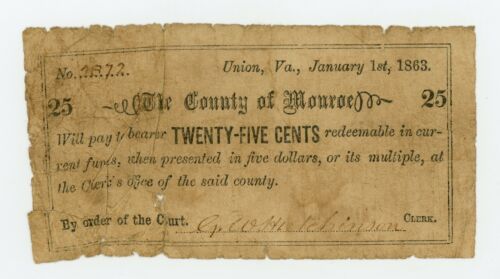 No. 2872. Union, Va., January 1st, 1863.
25 The County of Monroe 25
Will pay to bearer TWENTY-FIVE CENTS redeemable in cur-
rent funds, when presented in five dollars, or its multiple, at
the Clerk's office of the said county.
By order of the Court. G. W. Hutchinson CLERK.